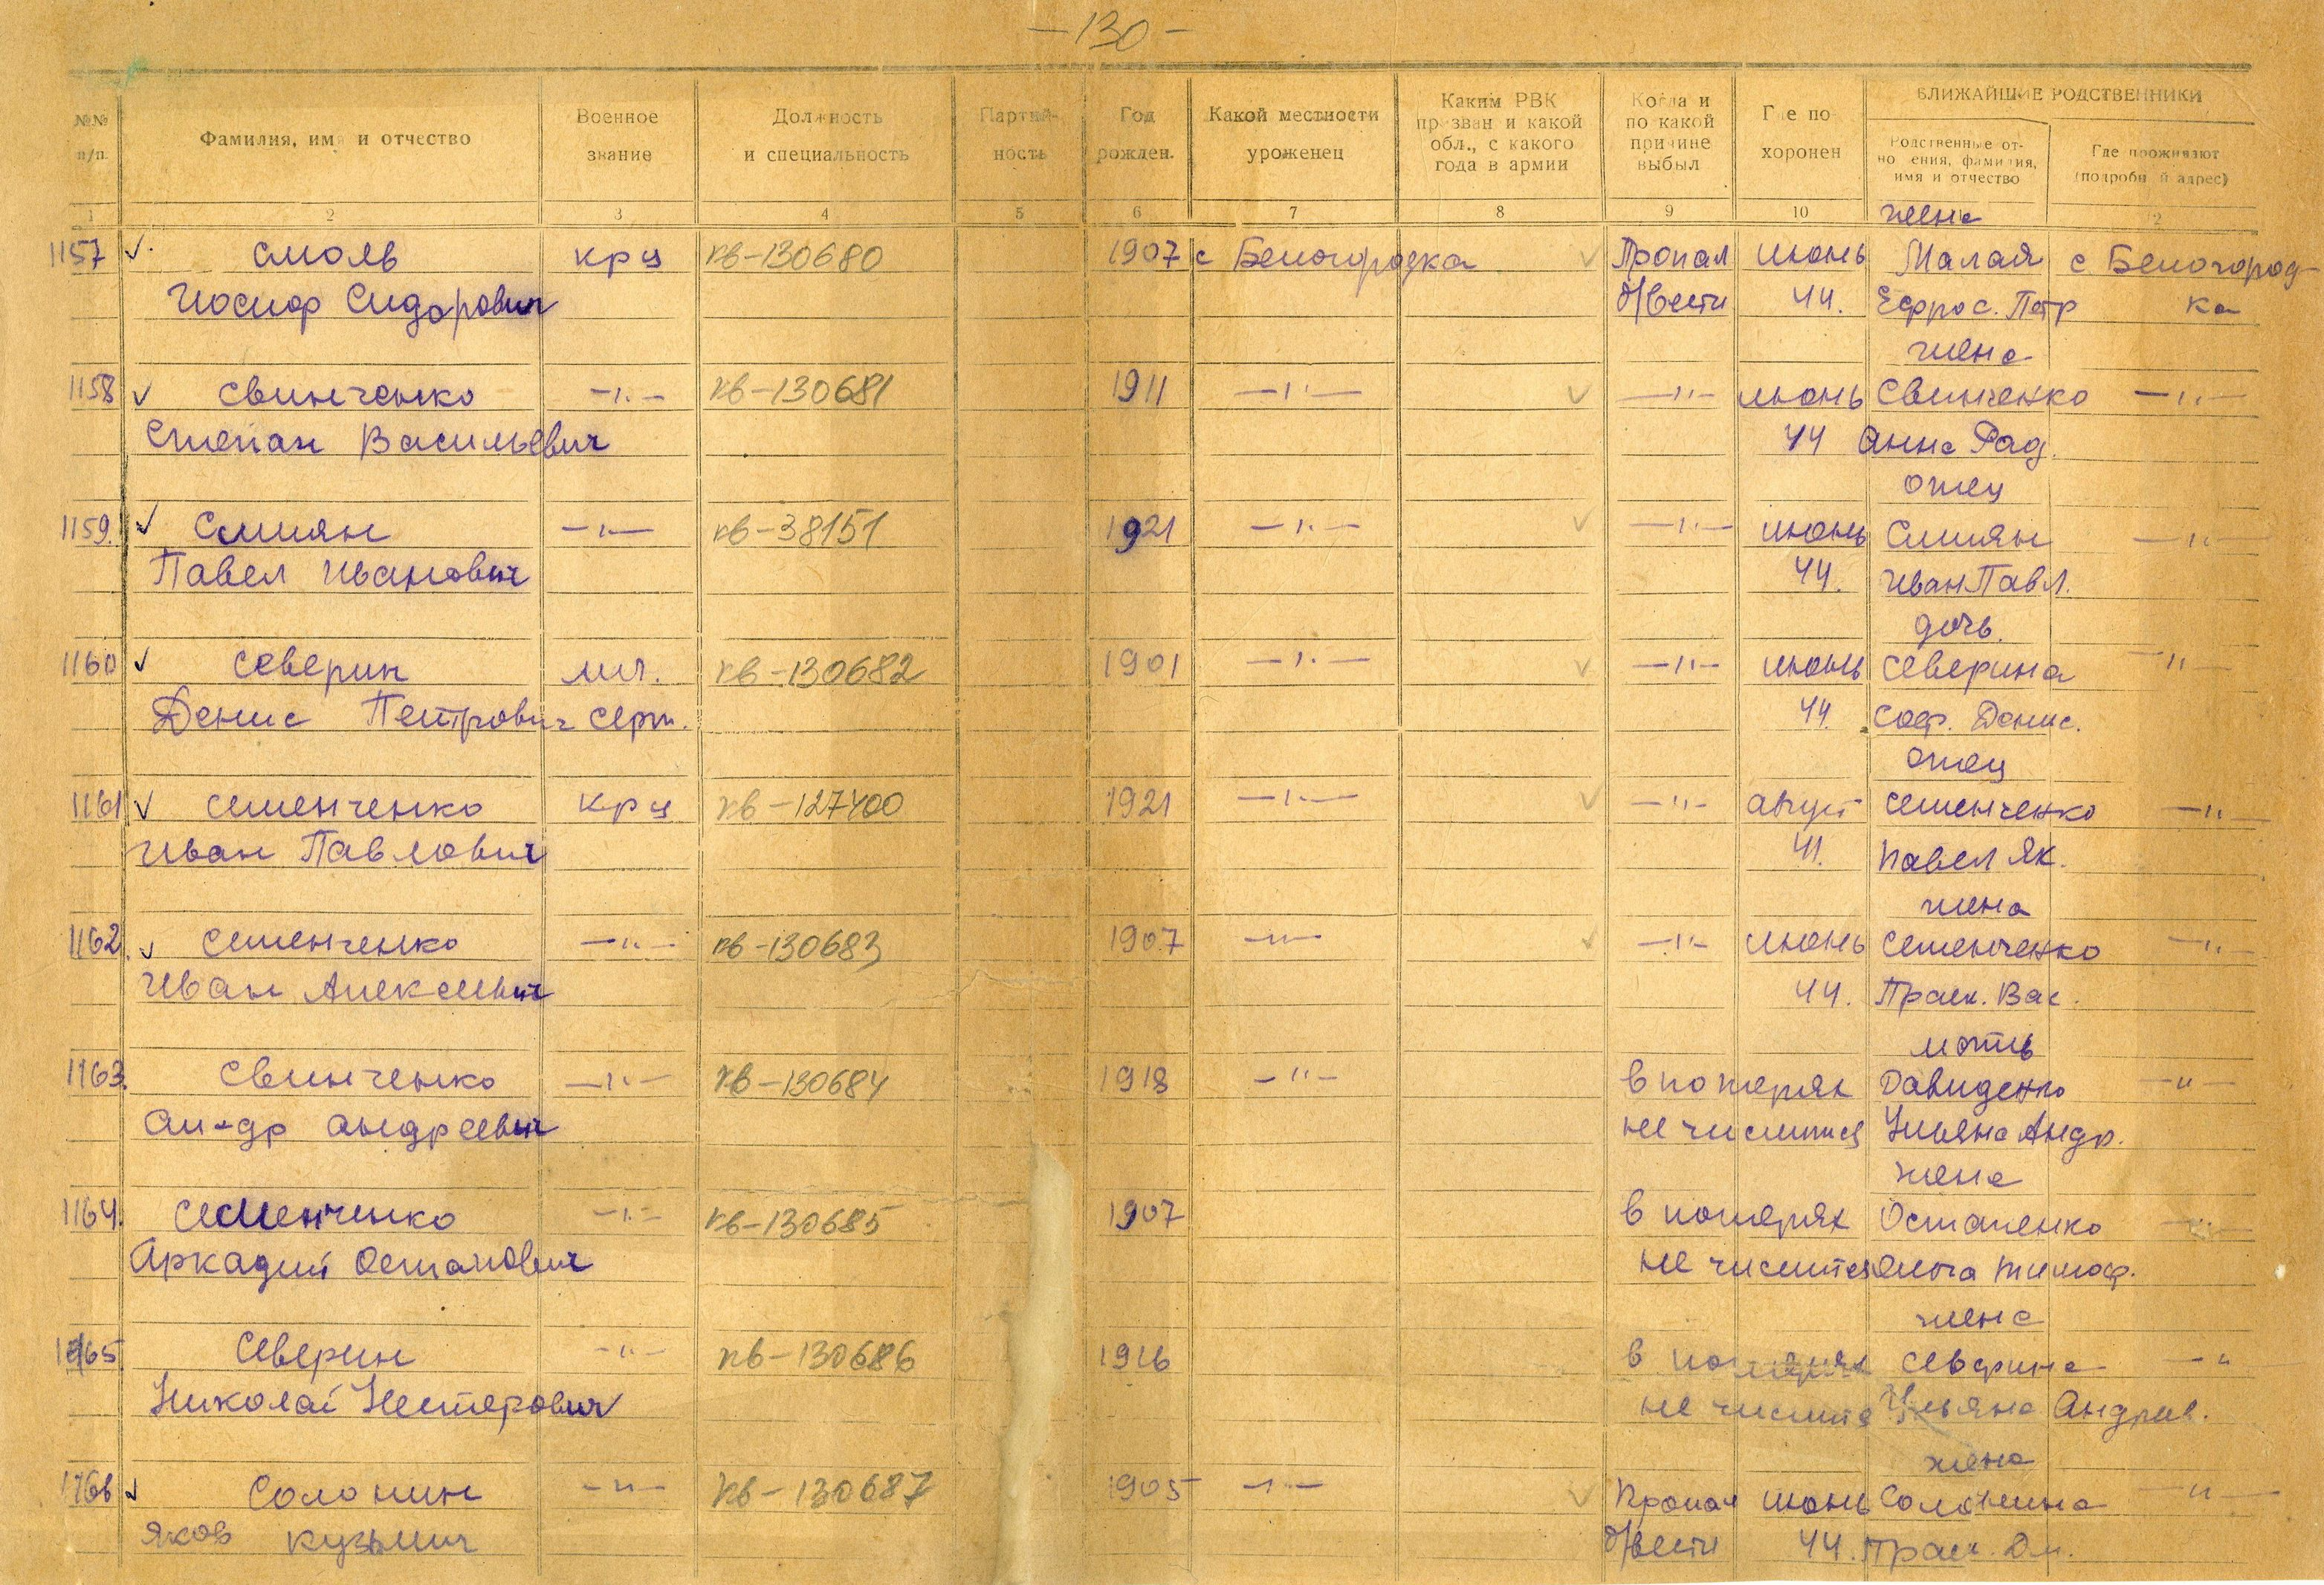 —130—
№№ п/п.
Фамилия, имя и отчество
Военное звание
Должность и специальность
Партий- ность
Год рожден.
Какой местности уроженец
Каким РВК призван и какой обл., с какого года в армии
Когда и по какой причине выбыл
Где по- хоронен
БЛИЖАЙШИЕ РОДСТВЕННИКИ
Родственные от- ношения, фамилия, имя и отчество
Где проживают (подробный адрес)
1 2 3 4 5 6 7 8 9 10 12
жена
1157 ✓ Смоль крц кв-130680 1907 с Белогородка ✓ Пропал июнь Малая с Белогород-
Иосиф Сидорович б/вести 44. Ефрос. Петр ка
жена
1158 ✓ Свинченко —"— кв-130681 1911 —"— ✓ —"— июнь Свинченко —"—
Степан Васильевич 44 Анна Рад.
отец
1159. ✓ Смиян —"— кв-38151 1921 —"— ✓ —"— июнь Смиян —"—
Павел Иванович 44. Иван Павл.
дочь.
1160 ✓ Северин мл. кв-130682 1901 —"— ✓ —"— июнь Северина —"—
Денис Петрович серж. 44. Соф. Денис.
отец
1161 ✓ Семенченко крц кв-127400 1921 —"— ✓ —"— август Семенченко —"—
Иван Павлович 41. Павел Як.
жена
1162. ✓ Семенченко —"— кв-130683 1907 —"— ✓ —"— июнь Семенченко —"—
Иван Алексеевич 44. Праск. Вас.
мать
1163. Свинченко —"— кв-130684 1918 —"— в потерях Давиденко —"—
Ал-др Андреевич не числится Ульяна Андр.
жена
1164. Семенченко —"— кв-130685 1907 в потерях Остапенко —"—
Аркадий Остапович не числится Ольга Тимоф.
жена
1165. Северин —"— кв-130686 1916 в потерях Северина —"
Николай Нестерович не числится Ульяна Андреев.
жена
1166 ✓ Солонин —"— кв-130687 1905 —"— ✓ Пропал июнь Солонина —"—
Яков Кузьмич б/вести 44. Праск. Дм.